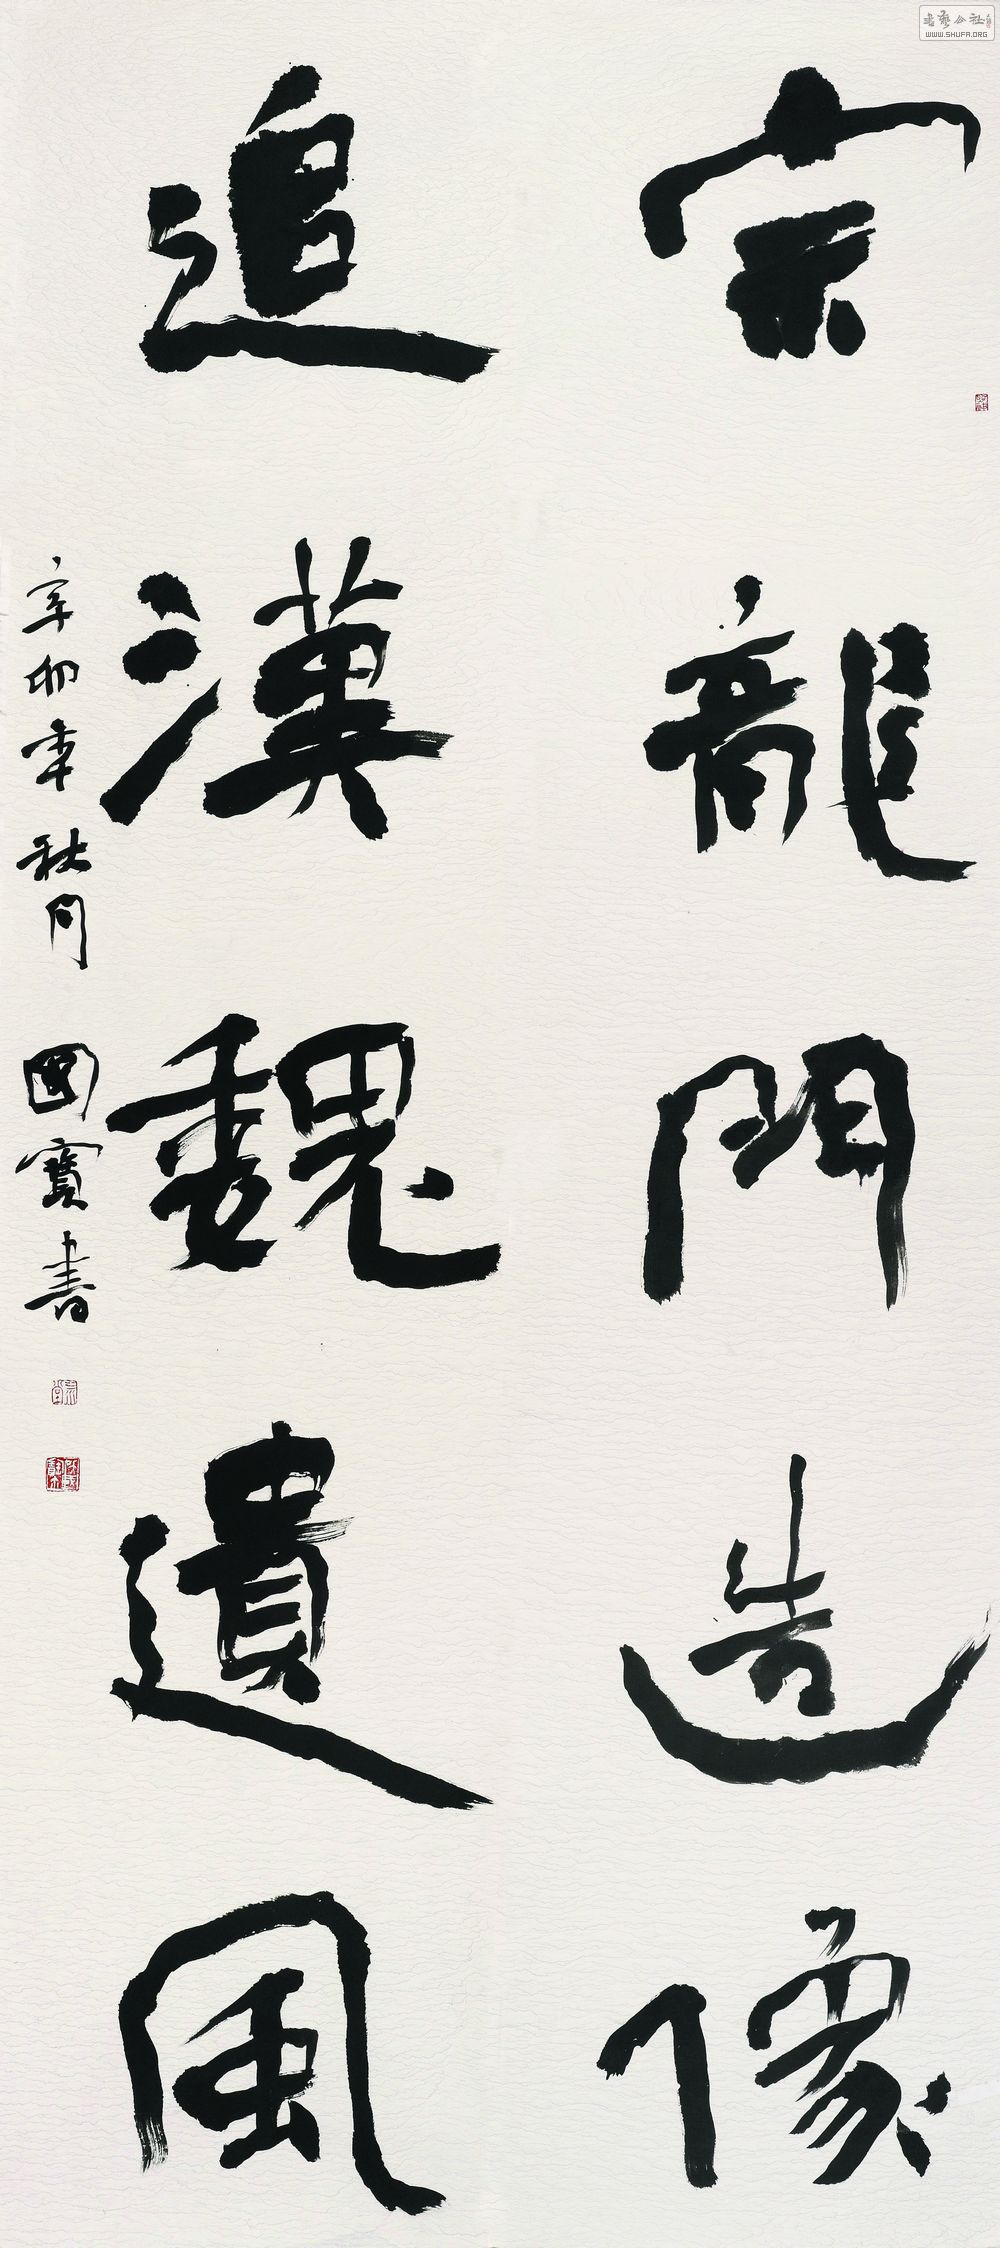 宗龍門造像
追漢魏遺風
辛卯年秋月 國寶書
書藝公社
WWW.SHUFA.ORG